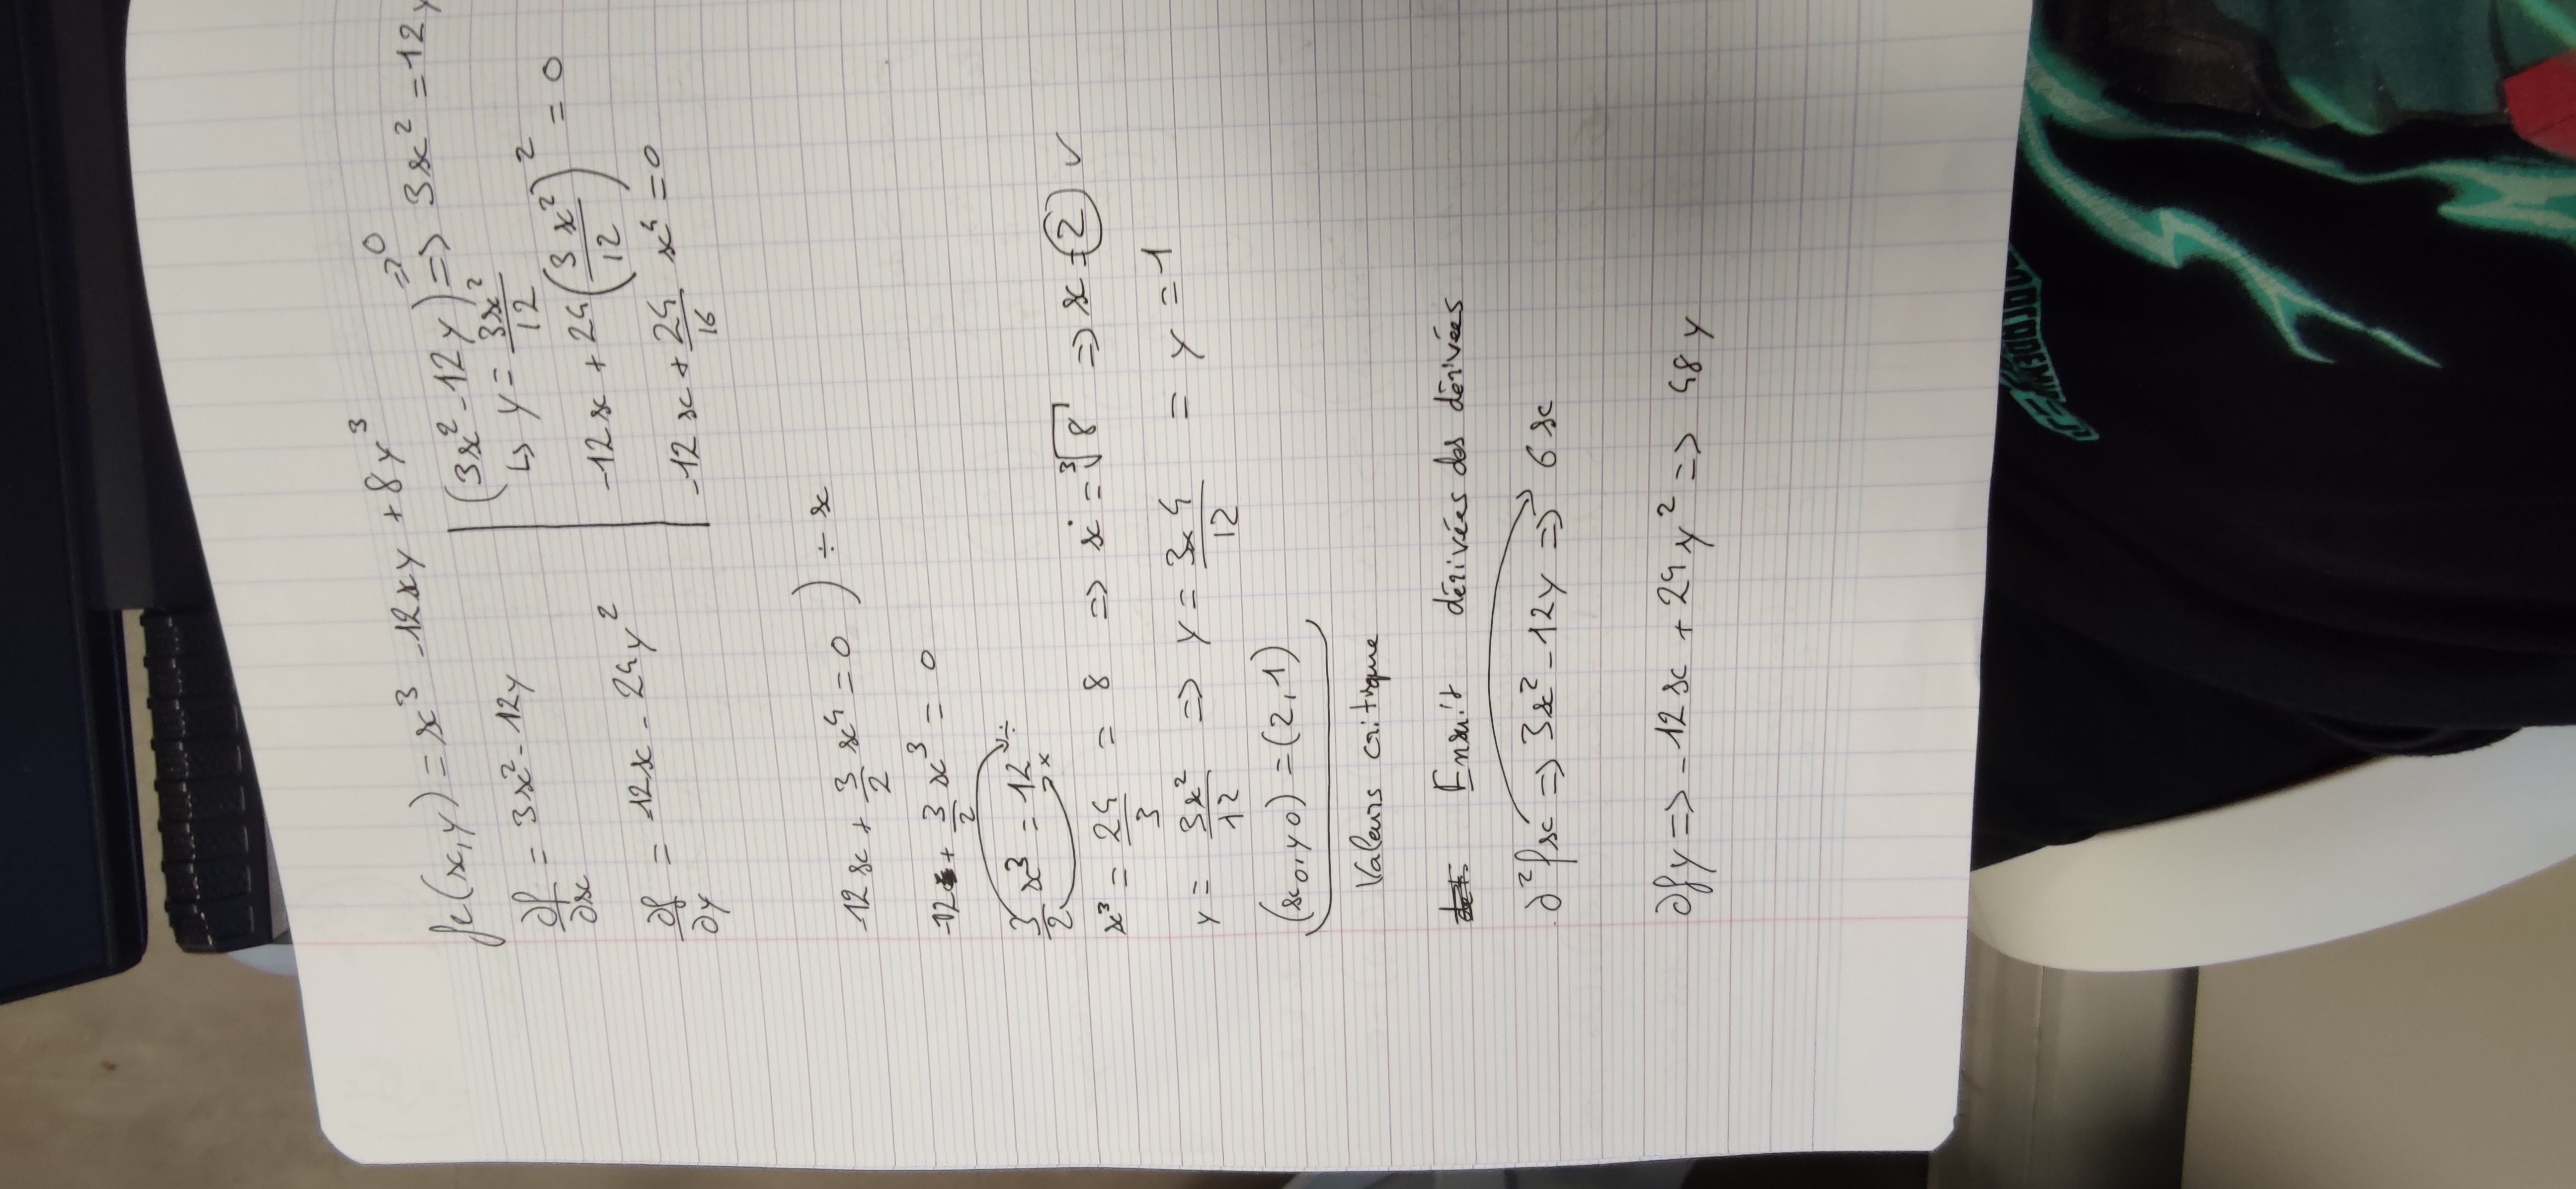 fc(x,y) = x³ - 12xy + 8y³
∂f/∂x = 3x² - 12y
∂f/∂y = 12x - 24y²
(3x² - 12y) => 0 => 3x² = 12y
↳ y = 3x²/12
-12x + 24(3x²/12)² = 0
-12x + 24/16 x⁴ = 0
-12x + 3/2 x⁴ = 0 ) ÷ x
-12 + 3/2 x³ = 0
3/2 x³ = 12 ÷ ×
x³ = 24/3 = 8 => x = ³√8 => x = 2 ✓
y = 3x²/12 => y = 3×4/12 = y = 1
(x0, y0) = (2, 1)
Valeurs critique
Ensuit dérivées des dérivées
∂²fx => 3x² - 12y => 6x
∂fy => -12x + 24y² => 48y